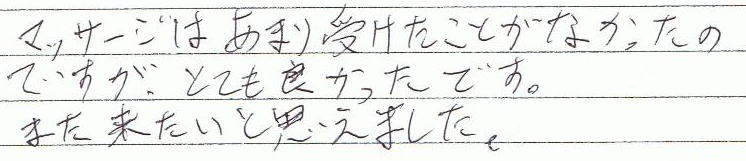 マッサージはあまり受けたことがなかったの
ですが、とても良かったです。
また来たいと思えました。